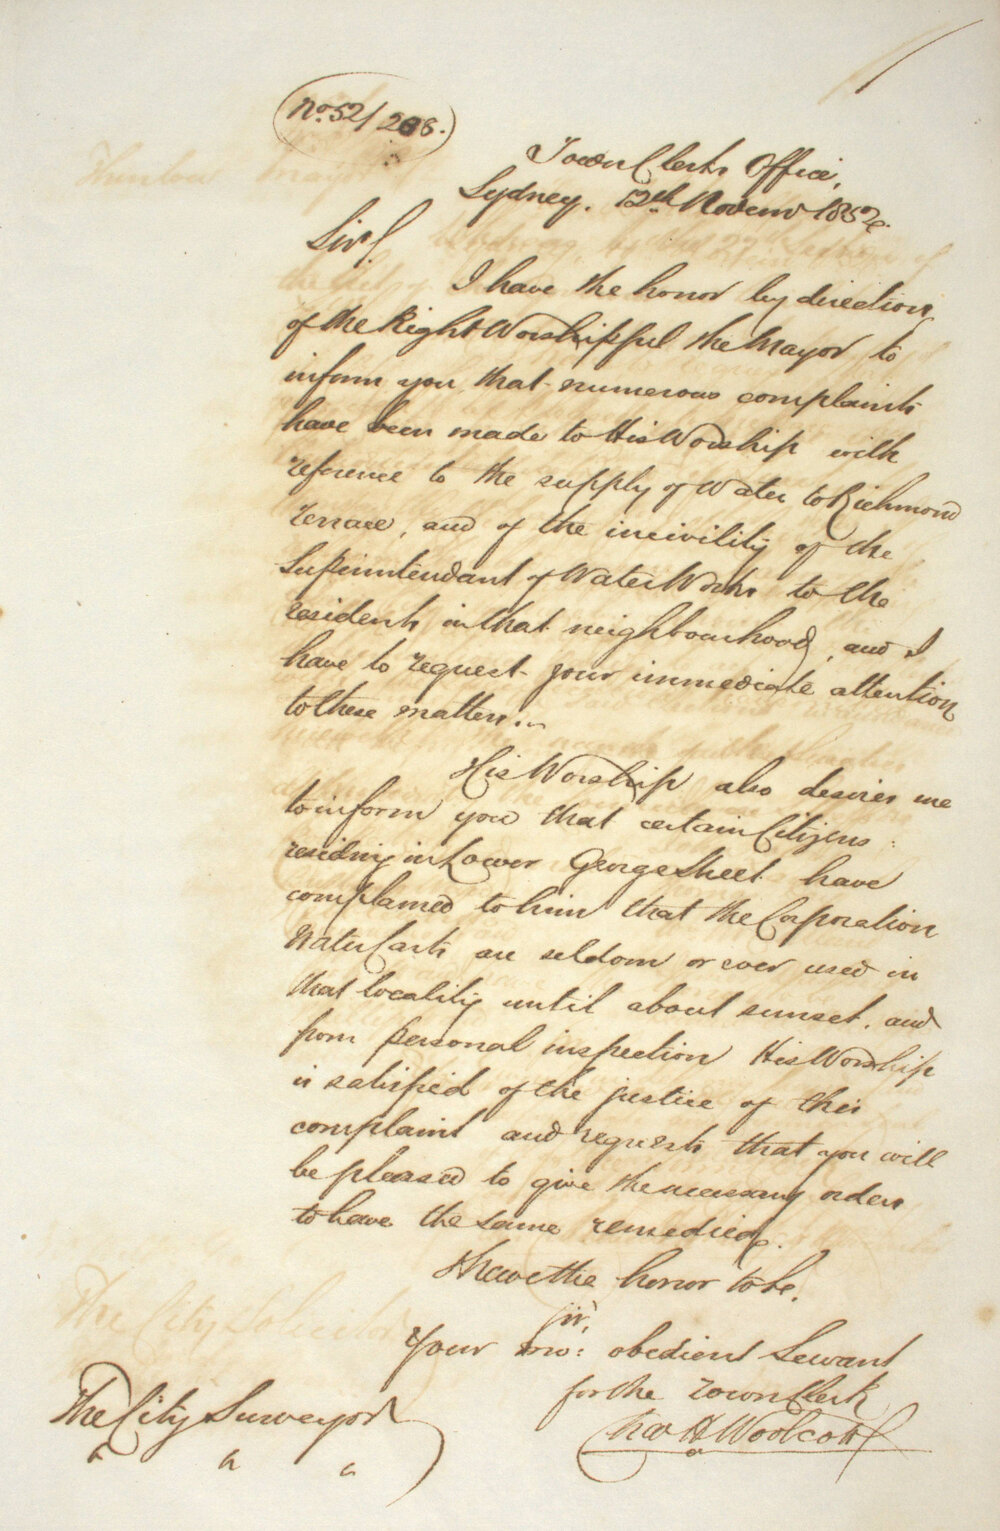 No. 52/208.
Town Clerk's Office,
Sydney. 12th Novemr 1852.
Sir,
I have the honor by direction
of the Right Worshipful the Mayor to
inform you that numerous complaints
have been made to His Worship with
reference to the supply of Water to Richmond
Terrace, and of the incivility of the
Superintendant of Water Works to the
residents in that neighbourhood, and I
have to request your immediate attention
to these matters.
His Worship also desires me
to inform you that certain Citizens
residing in Lower George Street have
complained to him that the Corporation
Water Carts are seldom or ever used in
that locality until about sunset, and
from personal inspection His Worship
is satisfied of the justice of this
complaint and requests that you will
be pleased to give the necessary orders
to have the same remedied.
I have the honor to be,
Sir,
Your mo: obedient Servant
for the Town Clerk
Chas H Woolcott
The City Surveyor
" " "